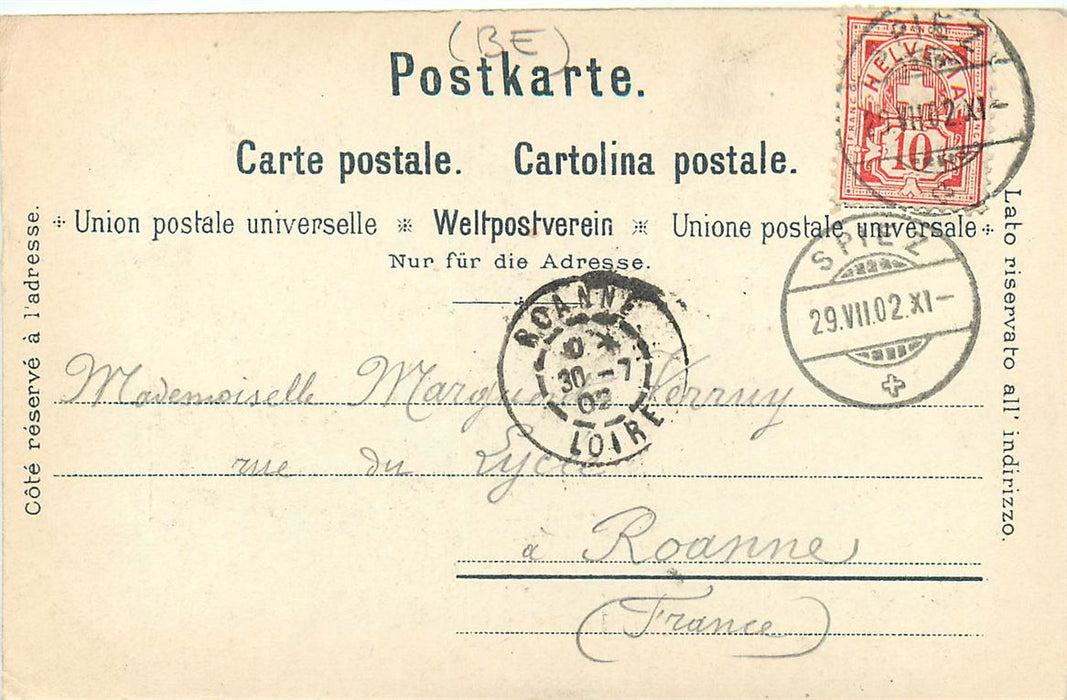 (BE)
Postkarte.
Carte postale. Cartolina postale.
Union postale universelle * Weltpostverein * Unione postale universale
Nur für die Adresse.
Côté réservé à l'adresse.
Lato riservato all' indirizzo.
FRANCO
HELVETIA
10
SPIEZ
VII.02.XI-
SPIEZ
29.VII.02.XI-
ROANNE
30-7
02
LOIRE
Mademoiselle
rue du Lycée
à Roanne
(France)